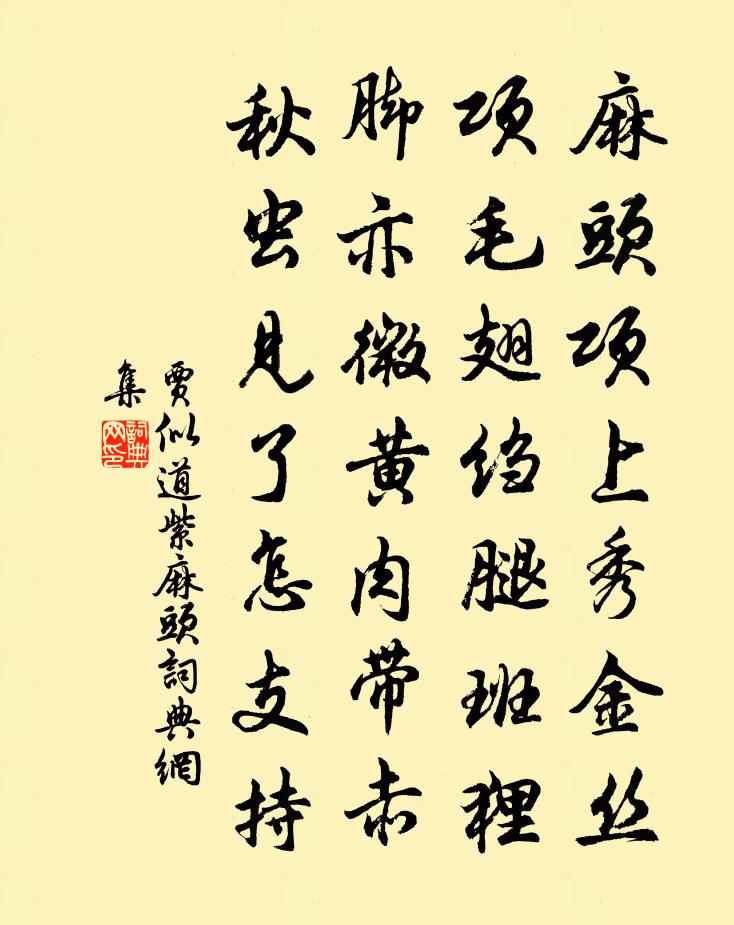 麻頭項上秀金丝
项毛翅绉腿班狸
脚亦微黄肉带赤
秋虫见了怎支持
賈似道紫麻頭詞典網
集
詞典
网印